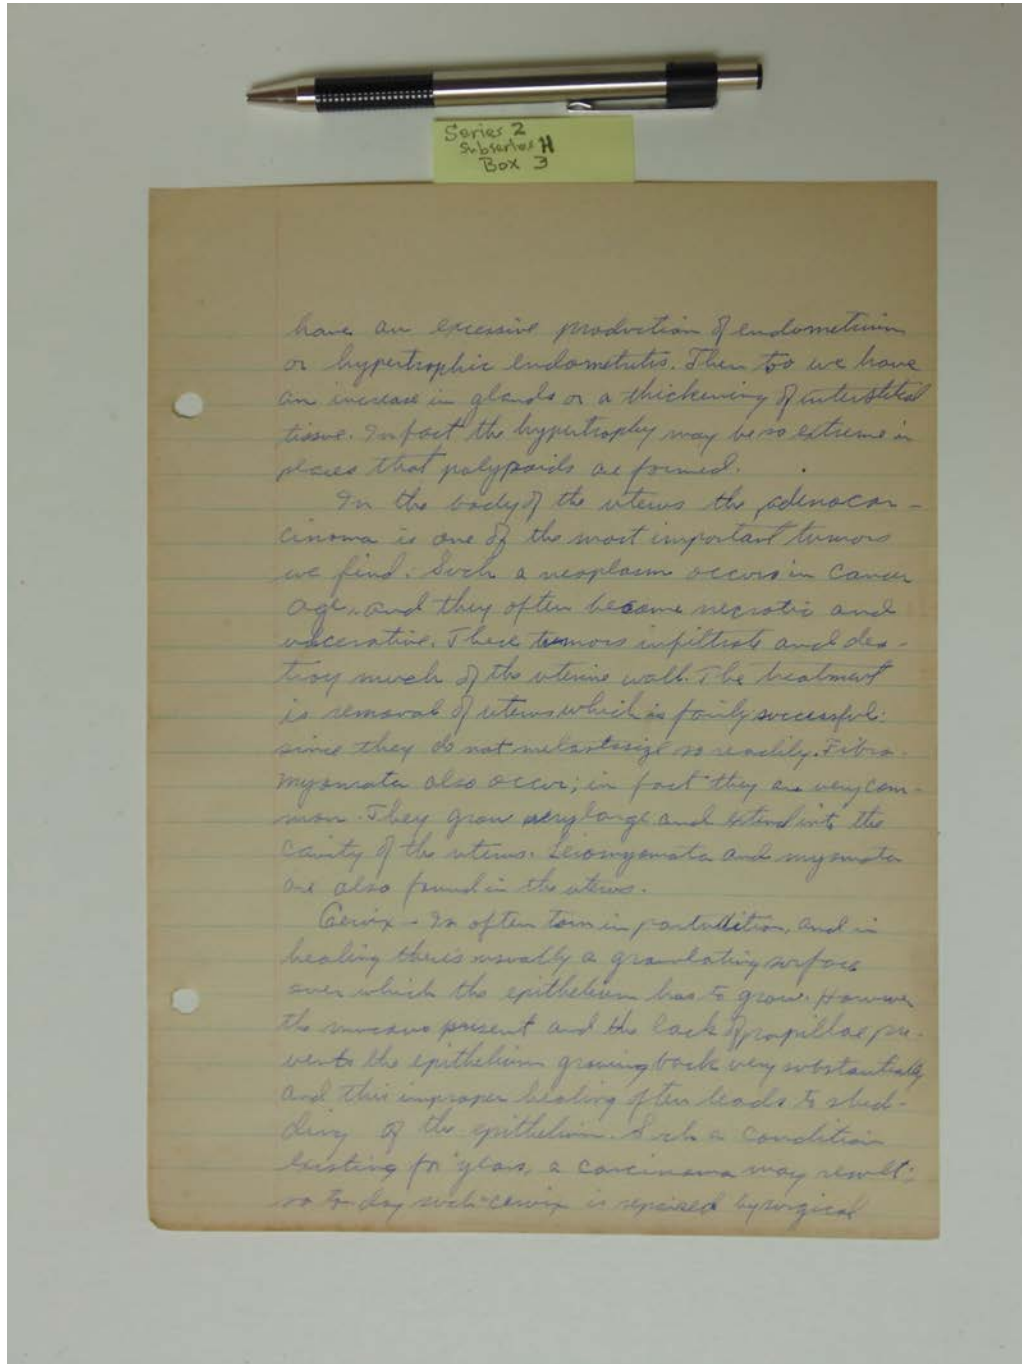 Series 2
Subseries H
Box 3
have an excessive production of endometrium
or hypertrophic endometritis. Then too we have
an increase in glands or a thickening of interstitial
tissue. In fact the hypertrophy may be so extreme in
places that polypoids are formed.
In the body of the uterus the adenocar-
cinoma is one of the most important tumors
we find. Such a neoplasm occurs in cancer
age, and they often become necrotic and
ulcerative. These tumors infiltrate and des-
troy much of the uterine wall. The treatment
is removal of uterus which is fairly successful:
since they do not metastasize so readily. Fibro-
myomata also occur; in fact they are very com-
mon. They grow very large and extend into the
cavity of the uterus. Leiomyomata and myomata
are also found in the uterus.
Cervix - Is often torn in parturition, and in
healing there's usually a granulating surface
over which the epithelium has to grow. However
the mucous present and the lack of papillae pre-
vents the epithelium growing back very substantially
and this improper healing often leads to shed-
ding of the epithelium. Such a condition
existing for years, a carcinoma may result;
so to-day such cervix is repaired by surgical